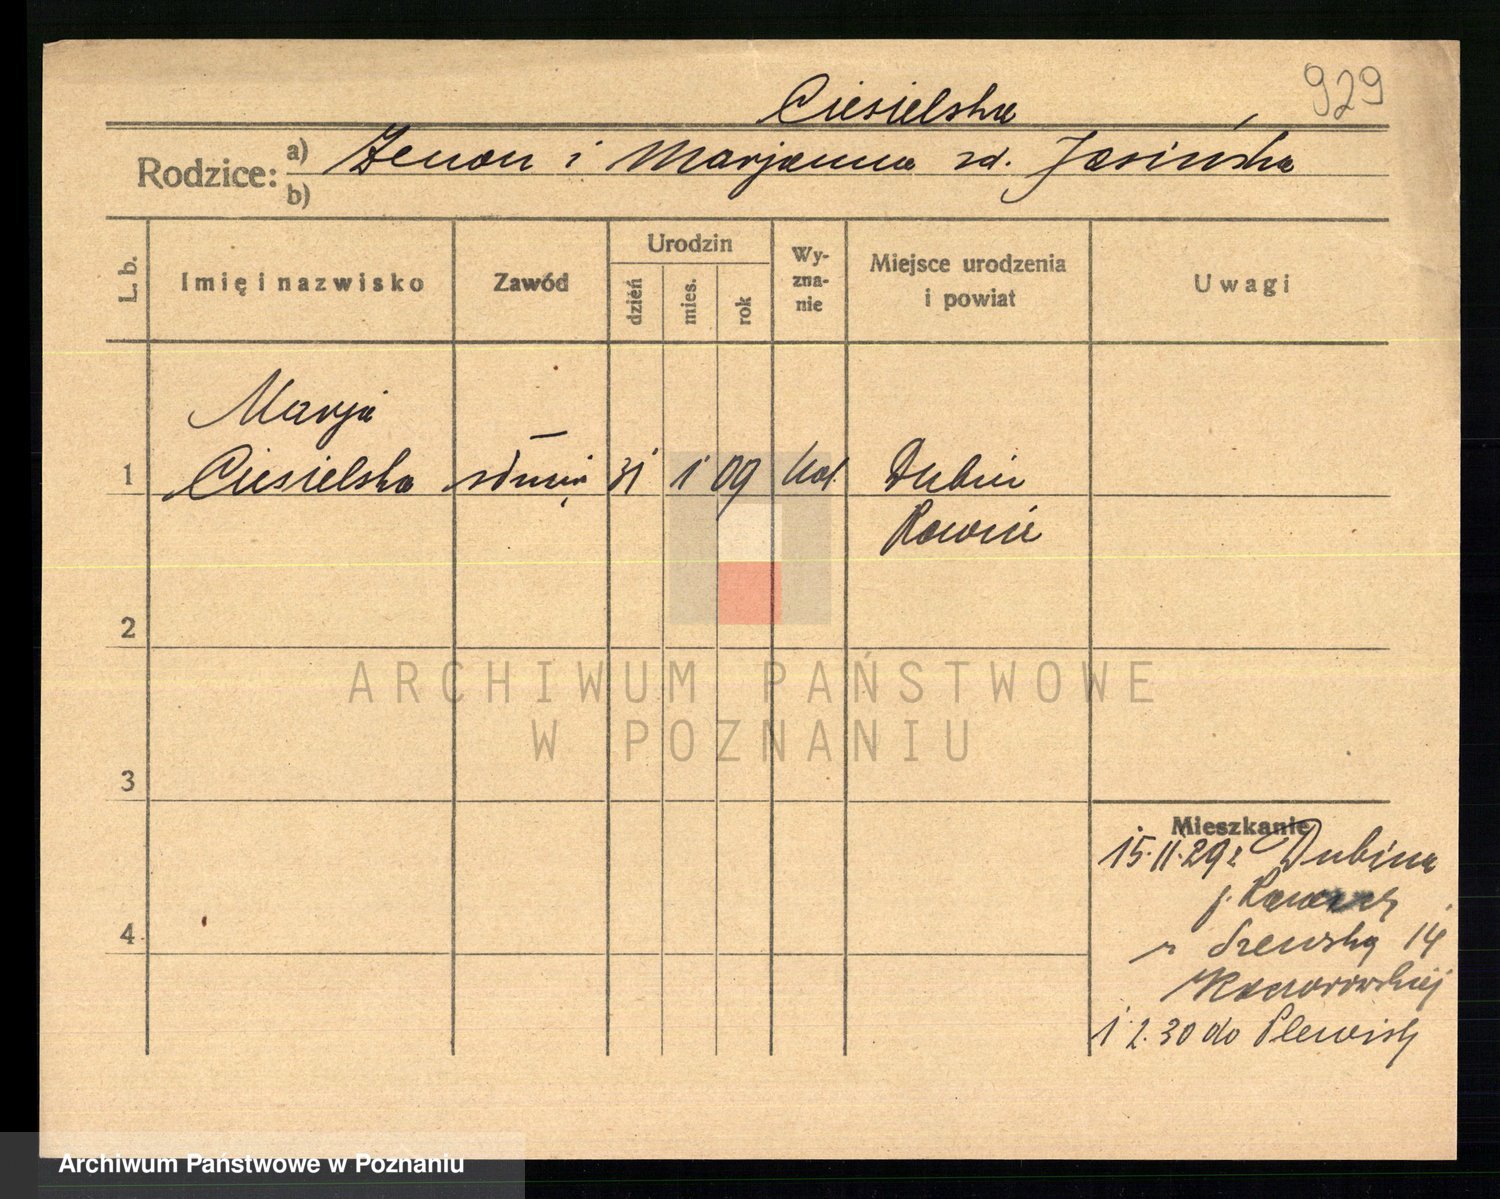 929
Ciesielska
Rodzice: a) Zenon i Marjanna zd. Jasińska
b)
L. b. Imię i nazwisko Zawód Urodzin dzień mies. rok Wy-zna-nie Miejsce urodzenia i powiat Uwagi
Marja
1 Ciesielska 31 1 09 kat. Dubin
Rawicz
2
ARCHIWUM PAŃSTWOWE
W POZNANIU
3
Mieszkanie
15.11.29 z Dubina
p. Rawicz
4 Szewska 14
1 2.30 do Plewisk
Archiwum Państwowe w Poznaniu